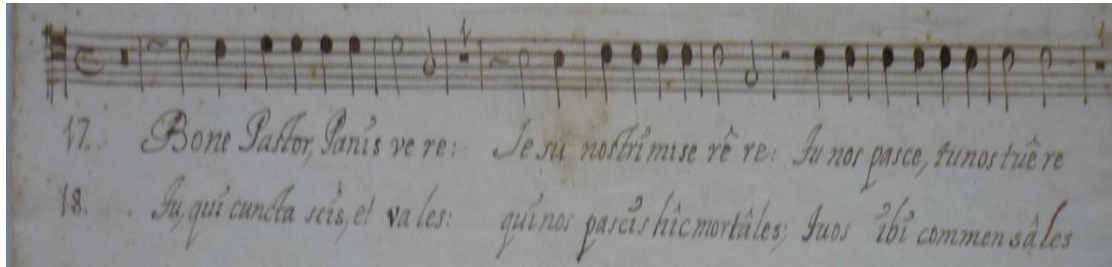 17. Bone Pastor, Panis ve re: Je su nostri mise rê re: Tu nos pasce, tu nos tuê re
18. Tu, qui cuncta scis, et va les: qui nos pascis hîc mortâles; tuos ibi commen sâles